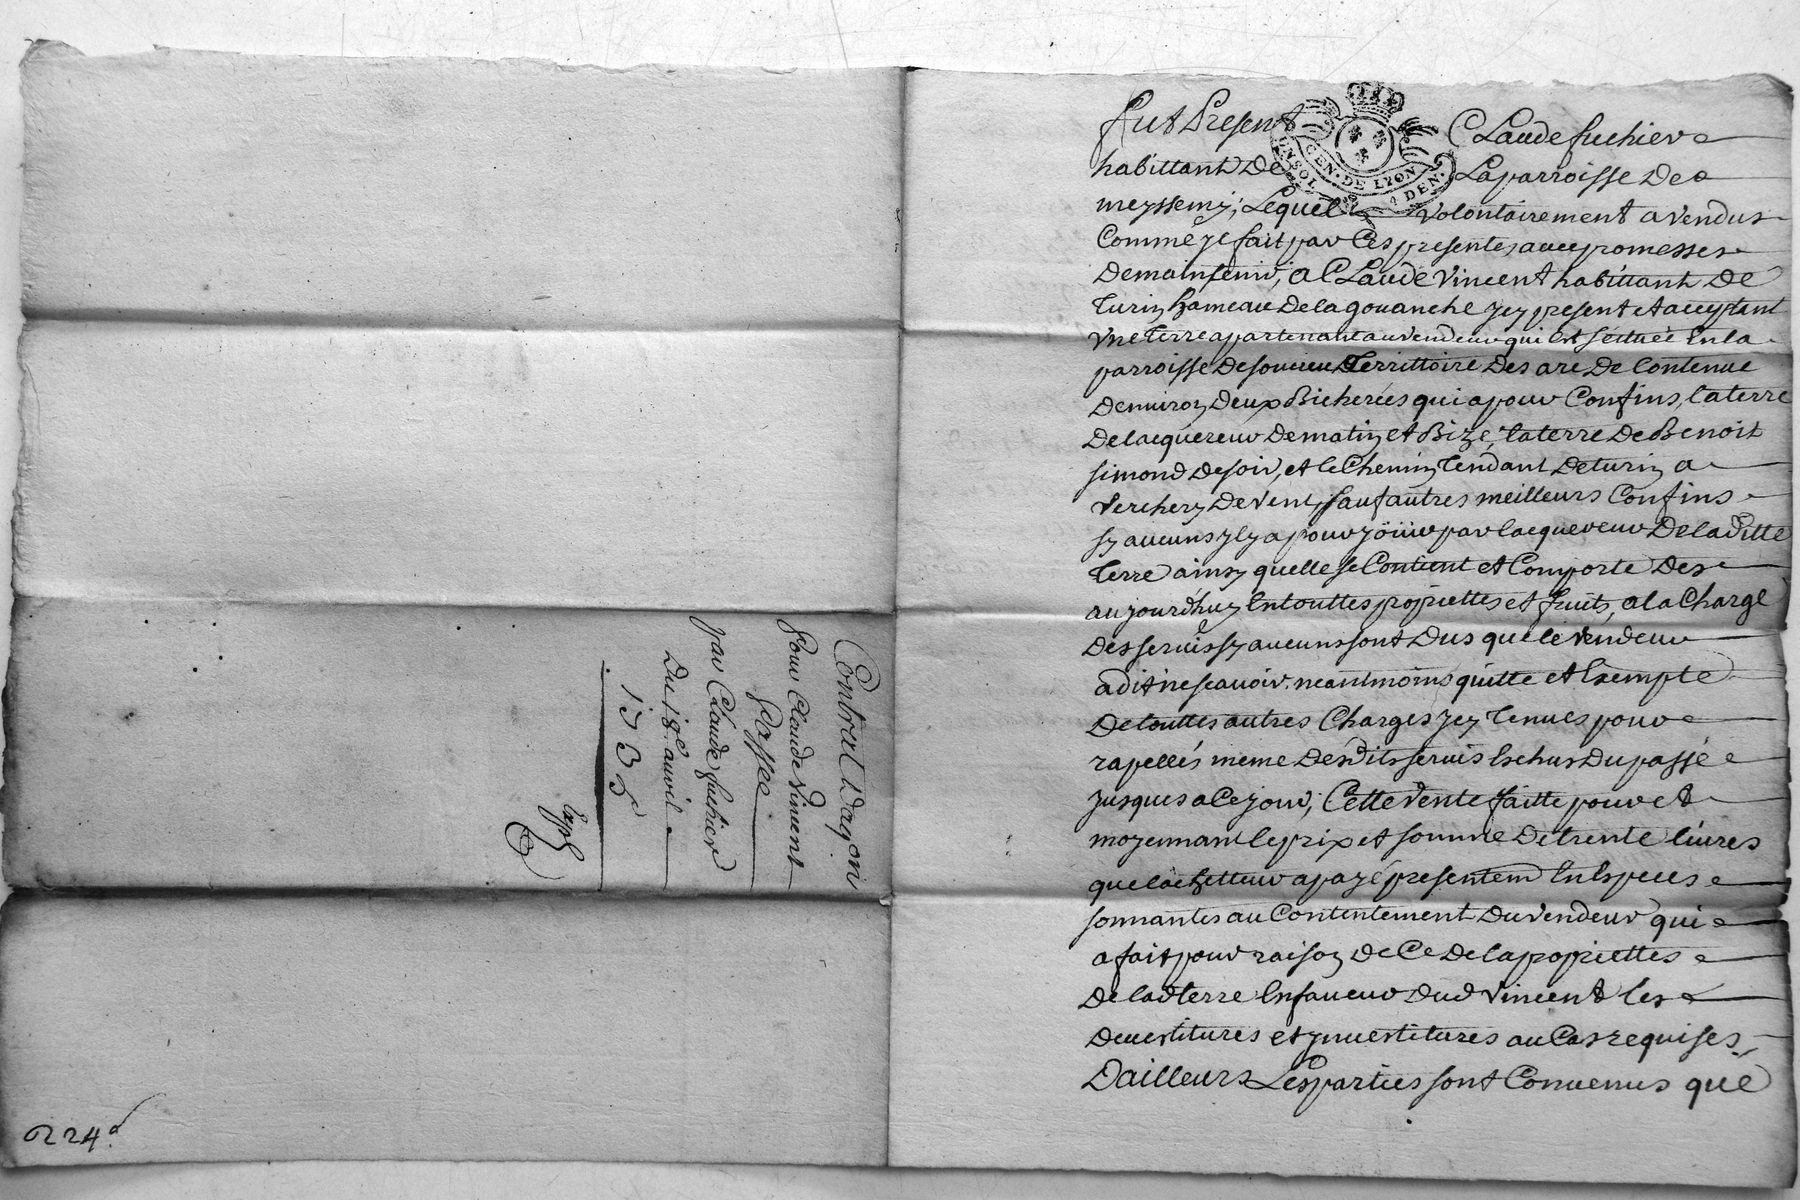 Contrat Daqon
Pour Claude Vincent
passee
par Claude fuchier
Du 18e. avril
1735
224
Fut Present Claude fuchier
GEN. DE LYON
4 DEN.
habittant De Laparroisse De
meyssemy, Lequel volontairement a vendus
Comme ye fait par Ces presentes avec promesses
De maintenir, a Claude Vincent habittant De
Turin hameau De la gouanche yey present et acceptant
Vne Terre apartenant au vendeur qui est sétuée En la
parroisse De soucieu Territtoire Des are De Contenue
Denuiron Deux Bicherées qui a pour Confins, la terre
De lacquereur De matin et Bize, la terre De Benoit
simond De soir, et le Chemin Tendant De turin a
Verchery De Vent, sauf autres meilleurs Confins
sy aucuns yl y a pour joüir par lacquereur De la Ditte
Terre ainsy quelle se Contient et Comporte Des
aujourd'huy En touttes propriettes et fruits, a la Charge
Des seruis sy aucuns sont Dus que le vendeur
a dit ne scauoir, neantmoins quitte et Exempte
De touttes autres Charges yey Tenues pour
rapellés meme Desdits seruis Echus Du passé
jusques a Ce jour; Cette vente faitte pour et
moyennant le prix et somme De trente livres
que lachetteur a payé presentemt En Especes
sonnantes au Contentement Du vendeur qui
a fait pour raison De Ce De la propriettes
De lad Terre En faueur Dud Vincent les
Deuestitures et ynuestitures au Cas requises
Dailleurs Les parties sont Conuenus que